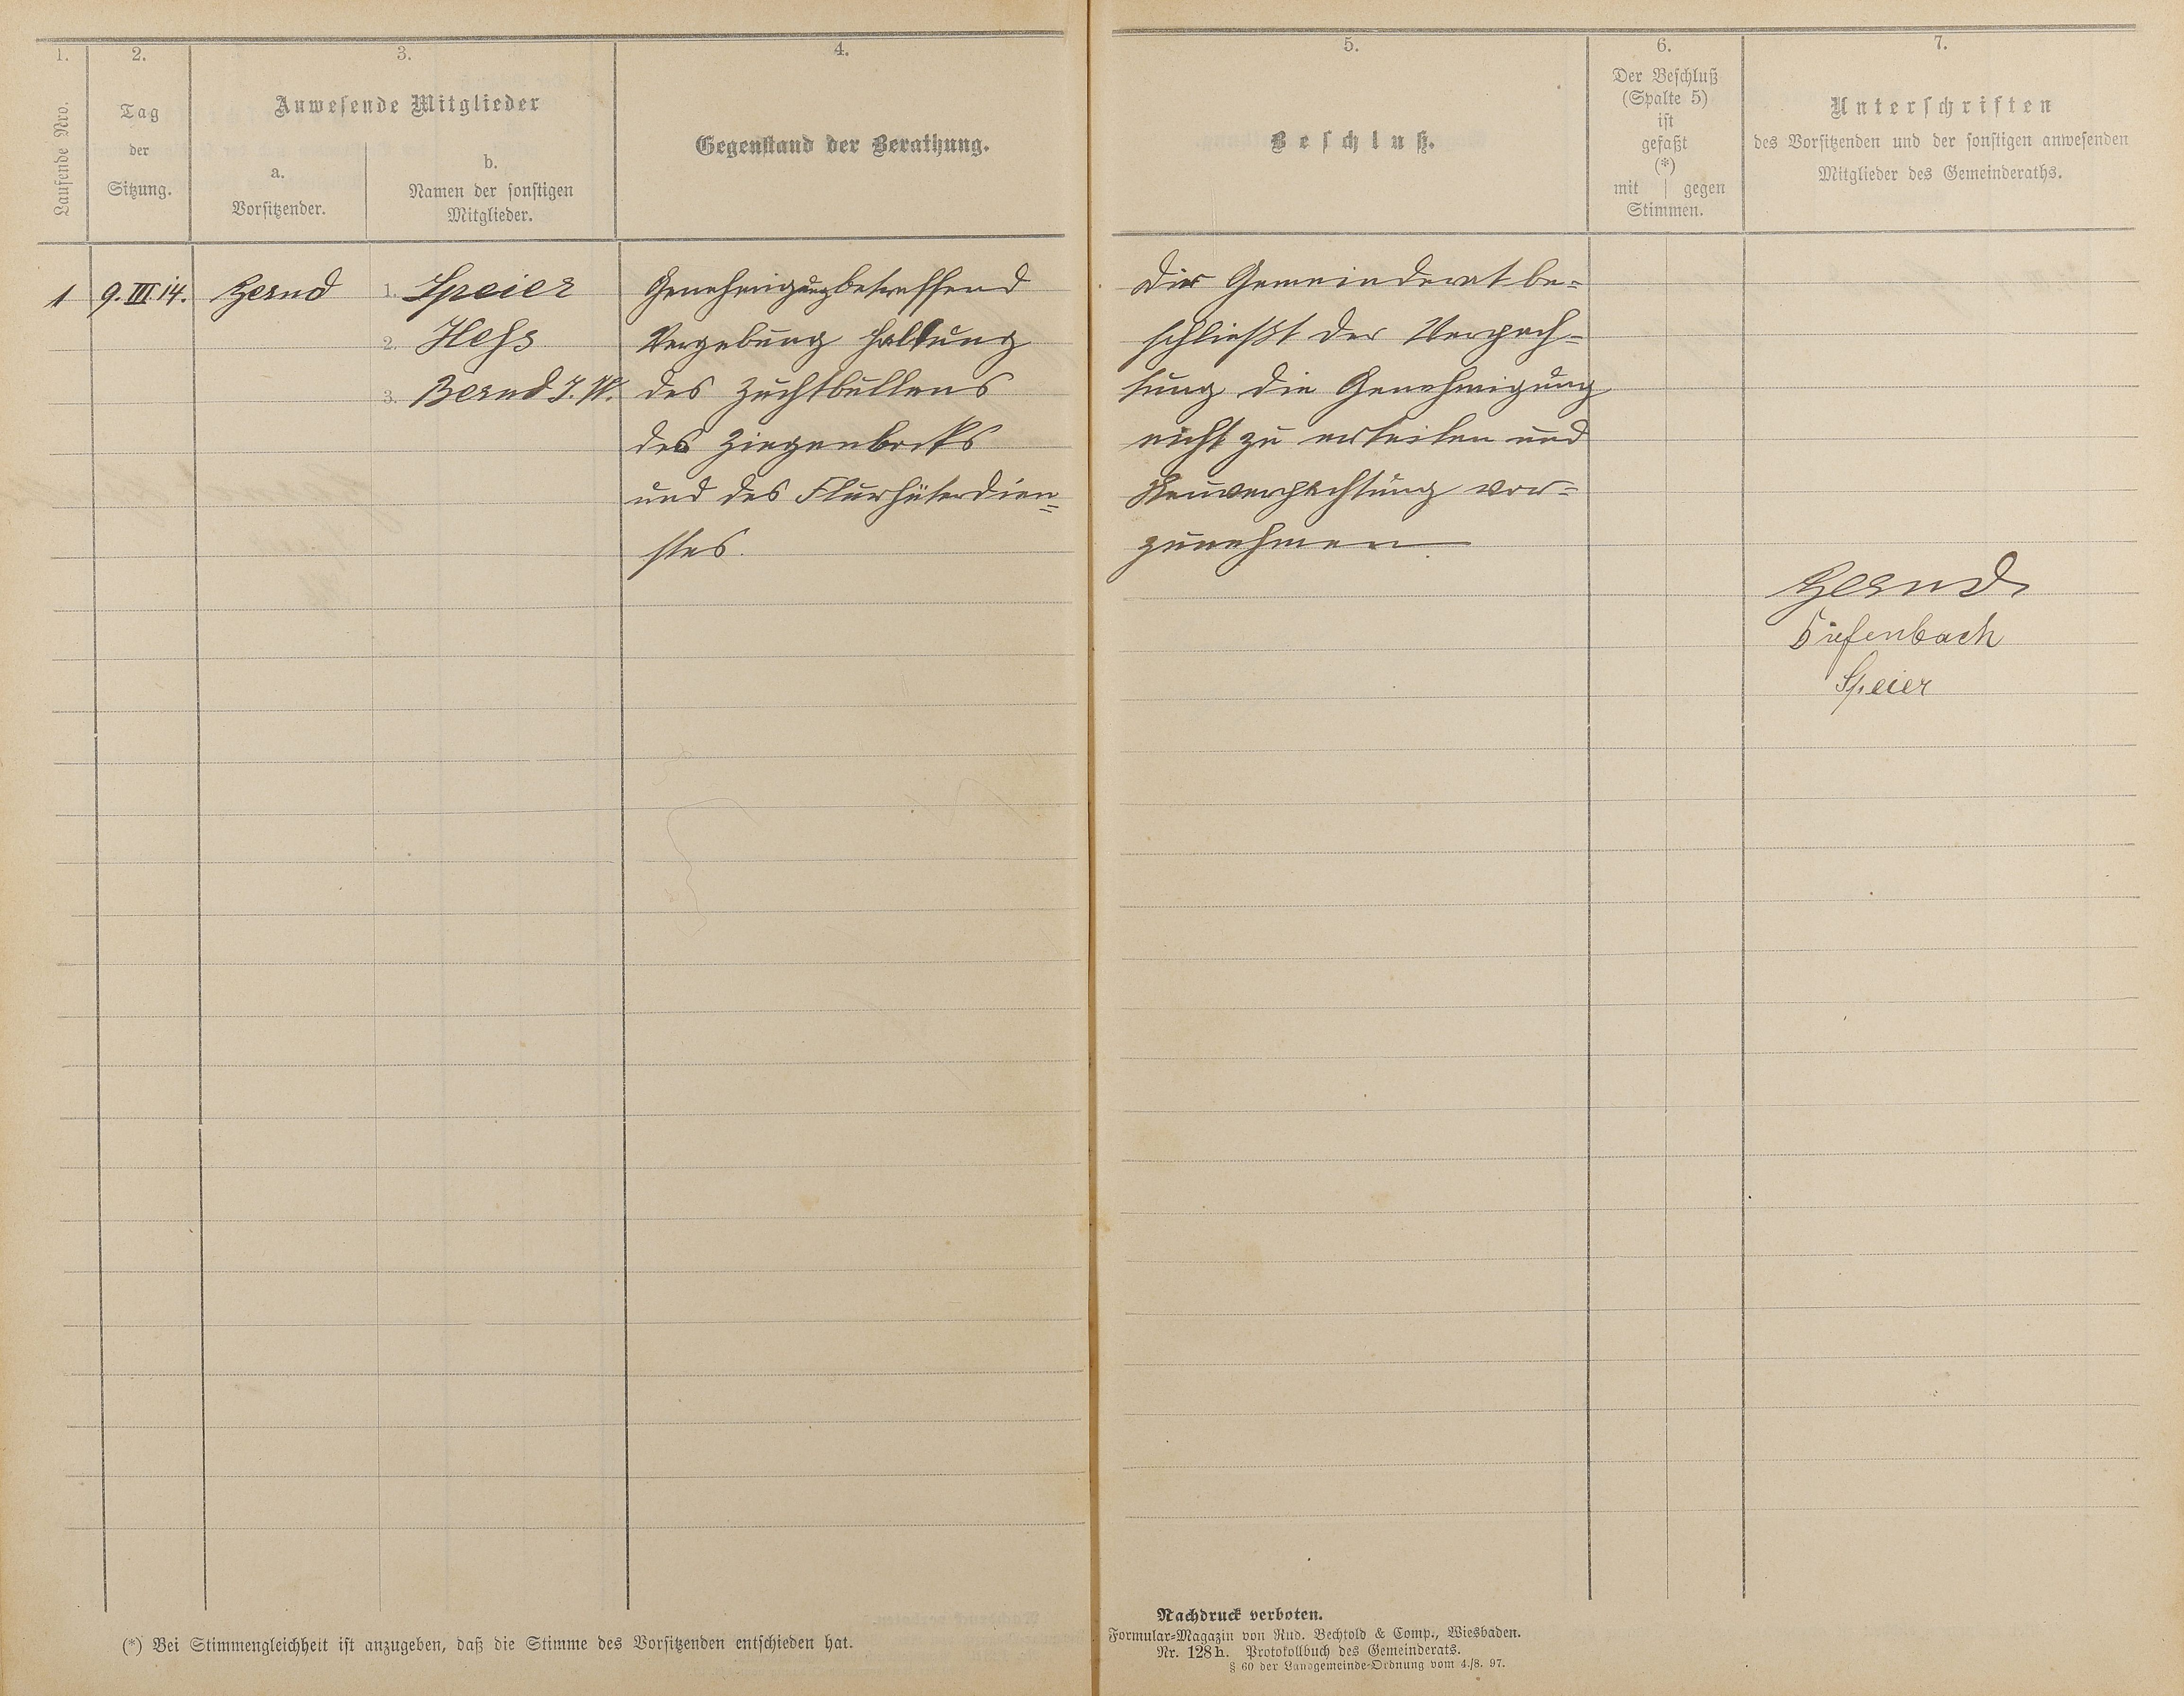 1.
Laufende Nro.
2.
Tag
der
Sitzung.
3.
Anwesende Mitglieder
a.
Vorsitzender.
b.
Namen der sonstigen
Mitglieder.
4.
Gegenstand der Berathung.
5.
Beschluß.
6.
Der Beschluß
(Spalte 5)
ist
gefaßt
(*)
mit | gegen
Stimmen.
7.
Unterschriften
des Vorsitzenden und der sonstigen anwesenden
Mitglieder des Gemeinderaths.
1
9. III. 14.
1. Speier
2. Hess
3. Bernd J. W.
Genehmigung betreffend
Vergebung Haltung
des Zuchtbullens
des Ziegenbocks
und des Flurhüterdien=
stes.
Der Gemeinderat be=
schließt der Verpach=
tung die Genehmigung
nicht zu erteilen und
Neuverpachtung vor=
zunehmen
Diefenbach
Speier
(*) Bei Stimmengleichheit ist anzugeben, daß die Stimme des Vorsitzenden entschieden hat.
Nachdruck verboten.
Formular=Magazin von Rud. Bechtold & Comp., Wiesbaden.
Nr. 128 b. Protokollbuch des Gemeinderats.
§ 60 der Landgemeinde=Ordnung vom 4./8. 97.